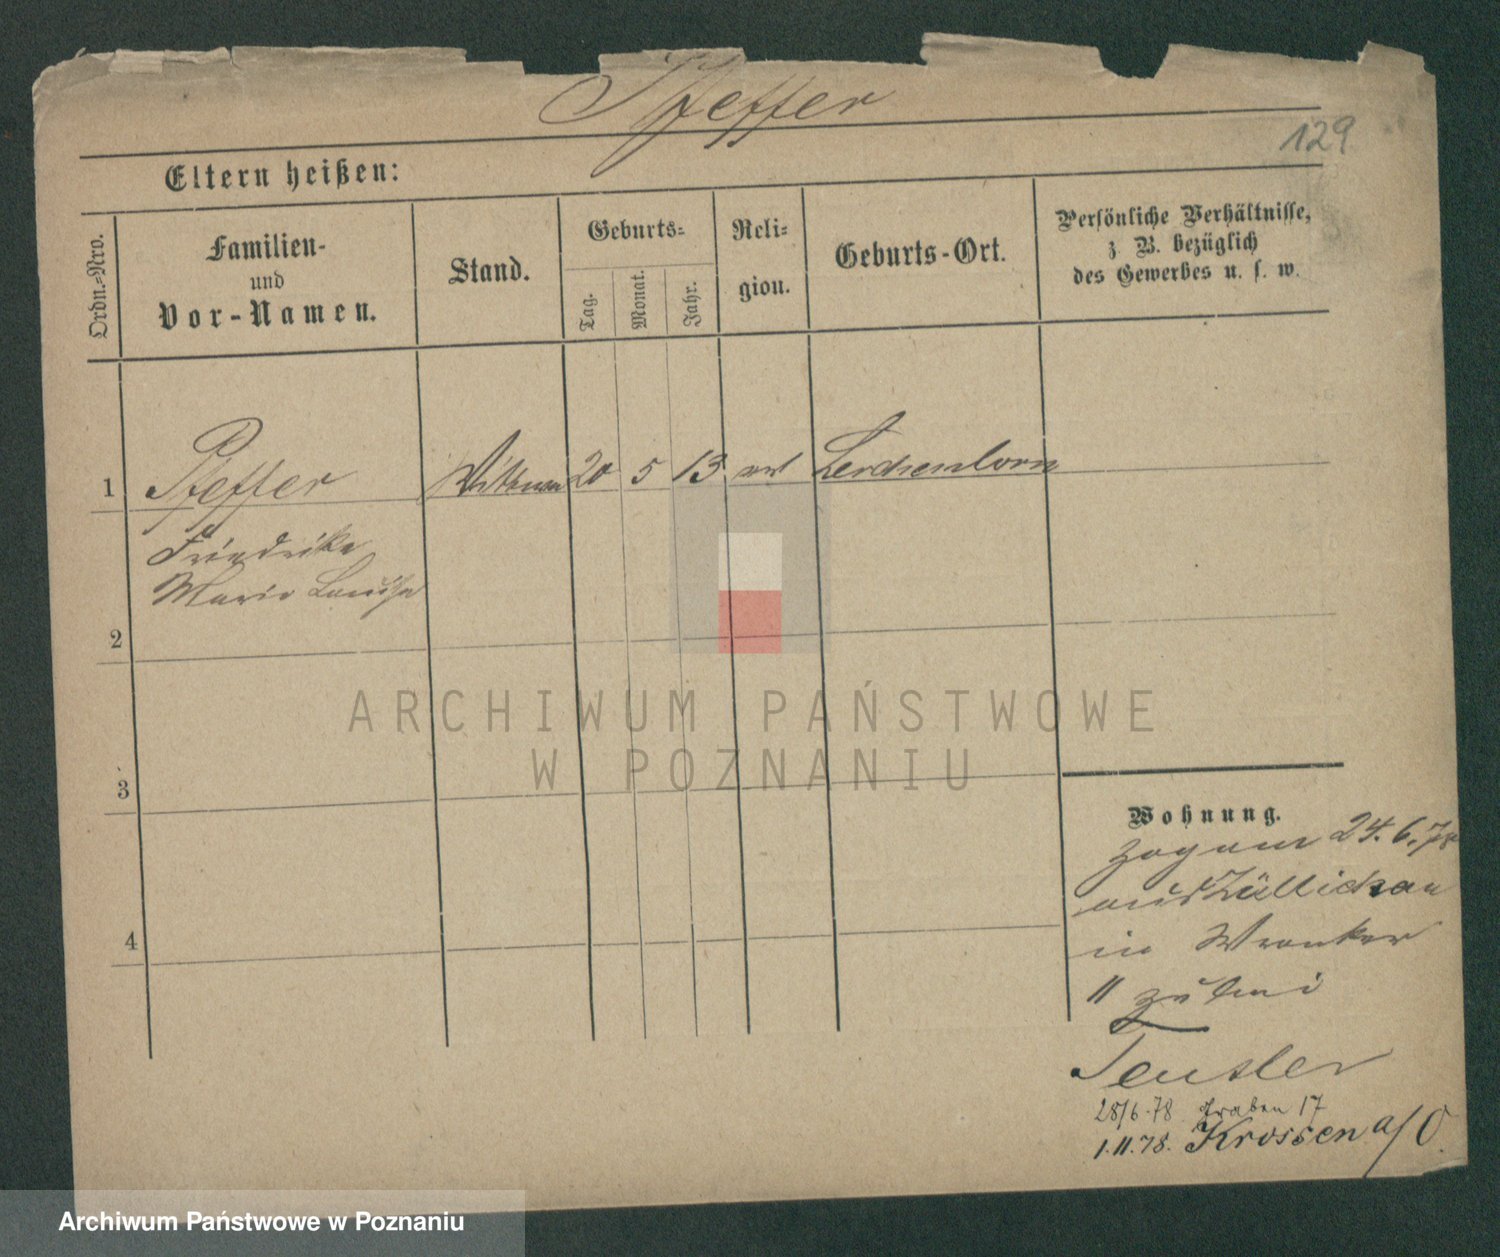 Pfeffer
129
Eltern heißen:
Ordn.-Nro.
Familien-
und
Vor-Namen.
Stand.
Geburts-
Tag.
Monat.
Jahr.
Reli-
gion.
Geburts-Ort.
Persönliche Verhältnisse,
z. B. bezüglich
des Gewerbes u. s. w.
1 Pfeffer Wittwe 20 5 13 ev Lerchenborn
Friedrike
Marie Louise
2
3
4
ARCHIWUM PAŃSTWOWE
W POZNANIU
Wohnung.
Zog am 24.6.78
aus Züllichau
in Wronker
11 zu
28/6.78 Graben 17
1.11.78. Krossen a/O.
Archiwum Państwowe w Poznaniu